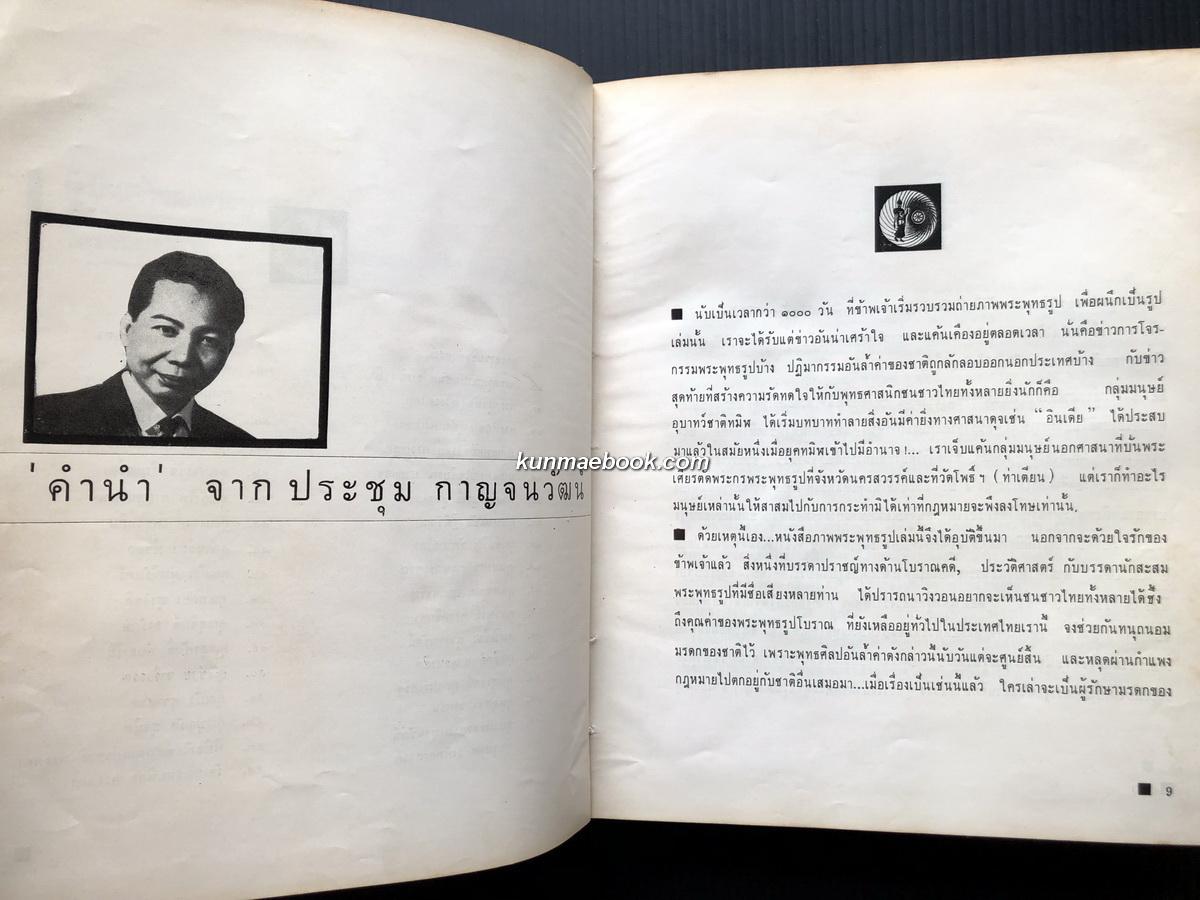 ่คำนำ่ จาก ประชุม กาญจนวัฒน์
kunmaebook.com
■ นับเป็นเวลากว่า ๑๐๐๐ วัน ที่ข้าพเจ้าเริ่มรวบรวมถ่ายภาพพระพุทธรูป เพื่อผนึกเป็นรูป
เล่มนั้น เราจะได้รับแต่ข่าวอันน่าเศร้าใจ และแค้นเคืองอยู่ตลอดเวลา นั่นคือข่าวการโจร-
กรรมพระพุทธรูปบ้าง ปฏิมากรรมอันล้ำค่าของชาติถูกลักลอบออกนอกประเทศบ้าง กับข่าว
สุดท้ายที่สร้างความรัดทดใจให้กับพุทธศาสนิกชนชาวไทยทั้งหลายยิ่งนักก็คือ กลุ่มมนุษย์
อุบาทว์ชาติทมิฬ ได้เริ่มบทบาททำลายสิ่งอันมีค่ายิ่งทางศาสนาดุจเช่น “อินเดีย” ได้ประสบ
มาแล้วในสมัยหนึ่งเมื่อยุคทมิฬเข้าไปมีอำนาจ !... เราเจ็บแค้นกลุ่มมนุษย์นอกศาสนาที่บั่นพระ
เศียรตัดพระกรพระพุทธรูปที่จังหวัดนครสวรรค์และที่วัดโพธิ์ ฯ (ท่าเตียน) แต่เราก็ทำอะไร
มนุษย์เหล่านั้นให้สาสมไปกับการกระทำมิได้เท่าที่กฎหมายจะพึงลงโทษเท่านั้น.
■ ด้วยเหตุนี้เอง...หนังสือภาพพระพุทธรูปเล่มนี้จึงได้อุบัติขึ้นมา นอกจากจะด้วยใจรักของ
ข้าพเจ้าแล้ว สิ่งหนึ่งที่บรรดาปราชญ์ทางด้านโบราณคดี, ประวัติศาสตร์ กับบรรดานักสะสม
พระพุทธรูปที่มีชื่อเสียงหลายท่าน ได้ปรารถนาวิงวอนอยากจะเห็นชนชาวไทยทั้งหลายได้ซึ้ง
ถึงคุณค่าของพระพุทธรูปโบราณ ที่ยังเหลืออยู่ทั่วไปในประเทศไทยเรานี้ จงช่วยกันทนุถนอม
มรดกของชาติไว้ เพราะพุทธศิลปอันล้ำค่าดังกล่าวนี้นับวันแต่จะศูนย์สิ้น และหลุดผ่านกำแพง
กฎหมายไปตกอยู่กับชาติอื่นเสมอมา...เมื่อเรื่องเป็นเช่นนี้แล้ว ใครเล่าจะเป็นผู้รักษามรดกของ
■ 9